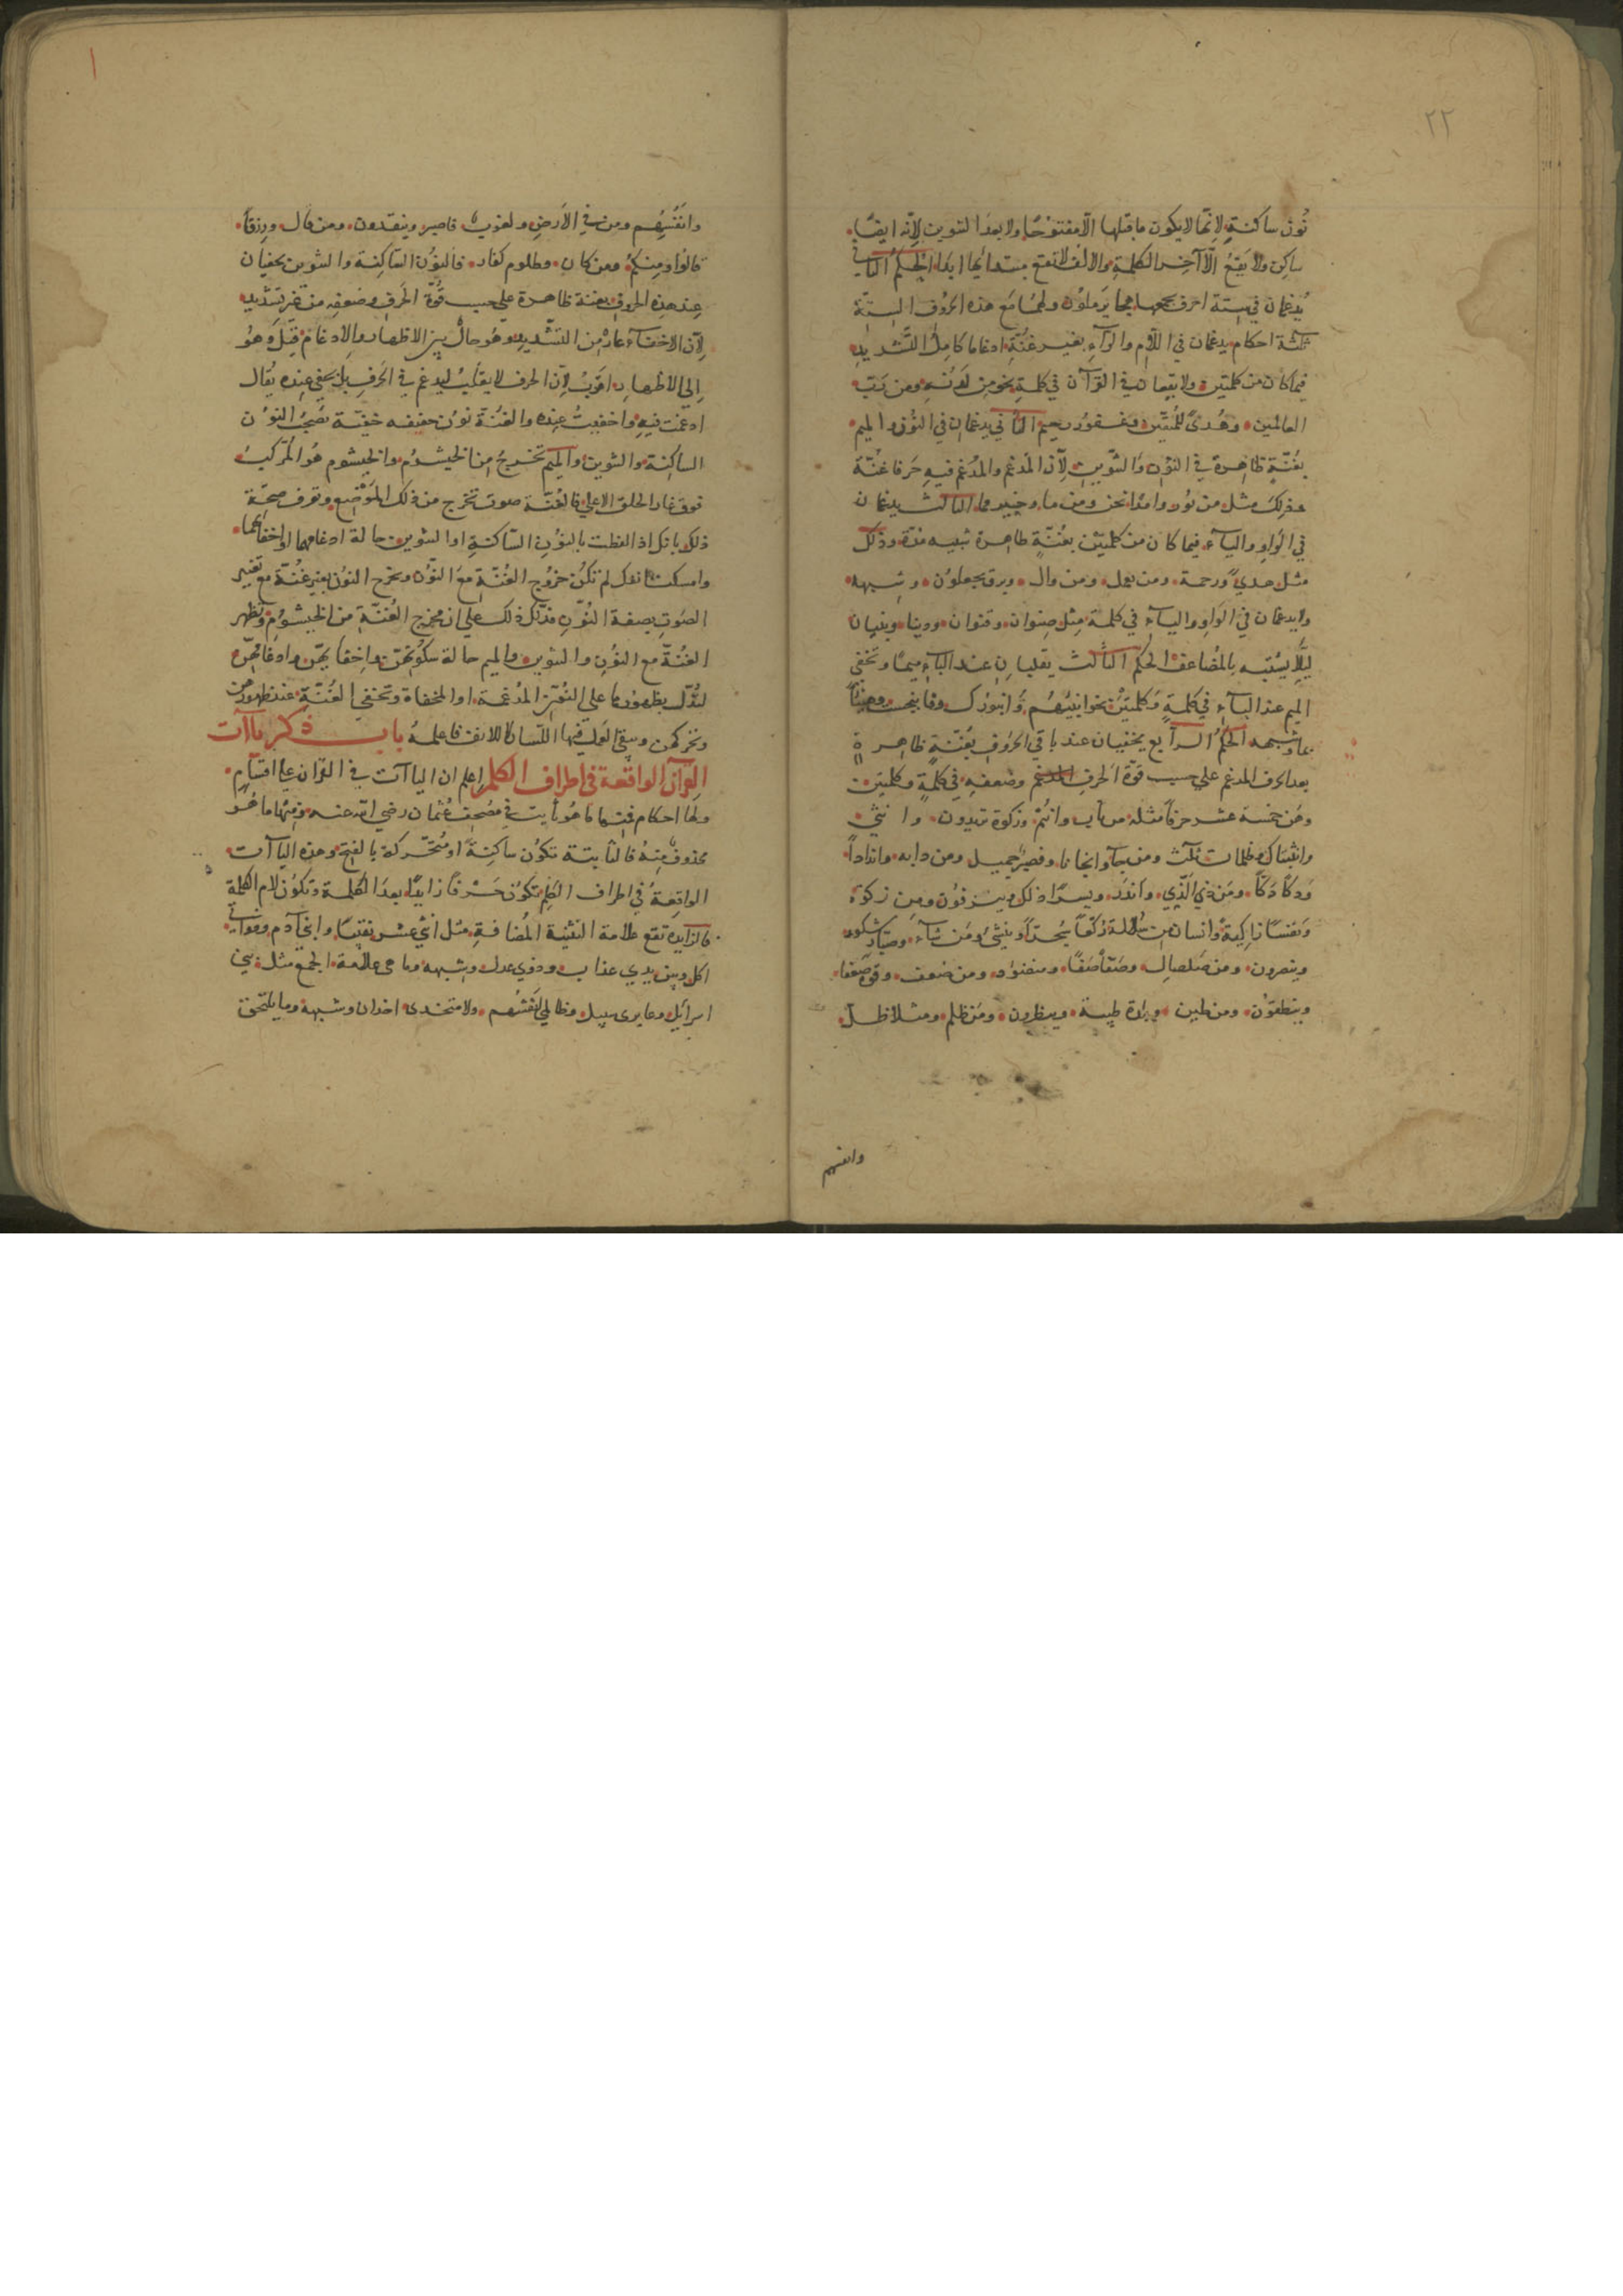 ٢٢
نُون ساكنةٍ لانّها لا يكون ما قبلها الّا مفتوحًا ولا بعد التنوين لانّه ايضًا
ساكن ولا يَقعُ الّا آخر الكلمةِ والالف لا تقع مبتدأ بها ابدا الحكم الثاني
يُدغمان في ستة احرف يجمعها هجا يَرملون ولهما مَع هذه الحروف الستة
ثلثة احكام يدغمان في اللّام والرآءِ بغير غُنّةٍ ادغاما كامِل التَّشديدِ
فيما كان من كلمتين ولا يقعان في القرآن في كلمةٍ نحو مِن لَدنه ومن رَبّ
العالمين وهُدىً للمُتّقين وغفور رحيم الثاني يدغمان في النُّون والميم
بغُنّةٍ ظاهرة في النون والتنوين لِأَن المدغم والمدُغم فيهِ حَرفا غُنّة
وذلك مثل من نُور وامدًا نحن ومن ما وخير مما الثالث يدغمان
في الواوِ واليآءِ فيما كان من كلمتين بغُنّةٍ ظاهرة شبيه مدّة وذلك
مثل هدىً ورحمة ومن يعمل ومن وال وبرق يجعلون وشبهه
ولا يدغمان في الواوِ واليآءِ في كلمة مثل صِنوان وقنوان ودنيا وبنيان
ليلَّا يشتبه بالمُضاعف الحكم الثالث يقلبانِ عند البآءِ ميمًا وتخفى
الميم عند البآءِ في كلمةٍ وكلمتين نحو انبئهُم وان بورك
وما شبهه الحكُم الرآبع يخفيان عند باقي الحروف بغُنّةٍ ظاهرة
بعد الحرف المدغم على حسب قوّة الحرف المدغم وضعفهِ في كلمةٍ وكلمتين
وهُن خمسة عشر حرفًا مثله من تاب وانتُم وزكوة تريدون وانثى
ومن ثلث ومن جآ وانجانا وفصبرٌ جميل ومن دابه واندادًا
ودكًّا دكًّا ومَن ذي الّذي واَنذر ويسرًا ذلك وينزفون ومن زكوة
ونفسًا زاكيةً وانسان من سُلالة ومَن شآءَ وصبّار شكور
وينصرون ومن صلصال وصَفًّا صَفًّا ومنضود ومن ضعف وقوّة ضعفا
وينطقون ومن طين وبلدة طيبة وينظرون ومَن ظلم ومثلا ظلّ
وانفسهم
وانفُسِهُم ومن في الاَرضِ ولغوب فاصبر وينقذون ومن قال ورزقًا
قالوا ومِنكم ومن كان وظلوم كفار فالنُوُن السّاكِنة والتنوين يخفيان
عِند هذِه الحروفِ بغنة ظاهرة على حسب قُوّة الحَرفِ وضعفِه من غير تشديد
لِأَن الاخفآءَ عارٍ من التشديد وهُو حال بين الاظهار والإدغام قيل وَهُو
إلى الاظهارِ اقربُ لأن الحرف لا يقلبُ ليدغم في الحَرفِ بل يخفى عِنده يُقال
ادغمت فيه واخفيتُ عِنده والغُنّة نون خفيفه خفيّة تصحبُ النون
الساكِنة والتنوين والميم تخرجُ مِن الخيشُوم والخيشوم هُو المُركّبُ
فوق غار الحلق الاعلى فالغُنّة صوت يخرج من ذلك المَوضِع وتعرف صحّة
ذلك بانك اذا لفظت بالنونِ السّاكنةِ او التنوين حالة ادغامهما او اخفائهما
وامسكت انفك لم تكُن خروج الغُنّةِ مَع النوُن ويخرج النوُن بغير غُنّة مع تغيير
الصَوتِ بصفة النُوّنِ فدّلك ذلك على ان مخرج الغُنّةِ من الخيشوُم وتظهر
الغُنّة مع النوُنِ والتنوين والميم حالة سكونهنّ واخفايهنّ وادغامهنّ
لتدّل بظهوُرها على النوُن المدغمة او المخفاة وتختفي الغُنّة عند ظهورهن
وتحركهن ويبقى العمل فيها اللّسان لا للانف فاعلمهُ باب ذكر ياآت
القرآن الواقعة في اطراف الكلم إعلم ان الياآت في القرآن على اقسام
ولها احكام فمنها ما هُو ثابت في مُصحف عُثمان رضي الله عنه ومنها ما هُو
محذوف مِنهُ فالثابتة تكوُن ساكِنة او متحّركة بالفتح وهذه الياآت
الواقِعةُ في اطراف الكِلم تكوُن حَرفًا زايدًا بعد الكلمة وتكوُن لام الكلمة
فالزايدة تقع علامة التثنية المُضافةِ مثل اثني عشر نقيبًا وابني آدم
اكل وبين يدي عذاب وذوي عدل وشبهه وما هي علامة الجمع مثل بني
اسرائيل وعابرى سبيل وظالمي انفسُهُم ولا متخذى اخدان وشبهه وما يلتحق